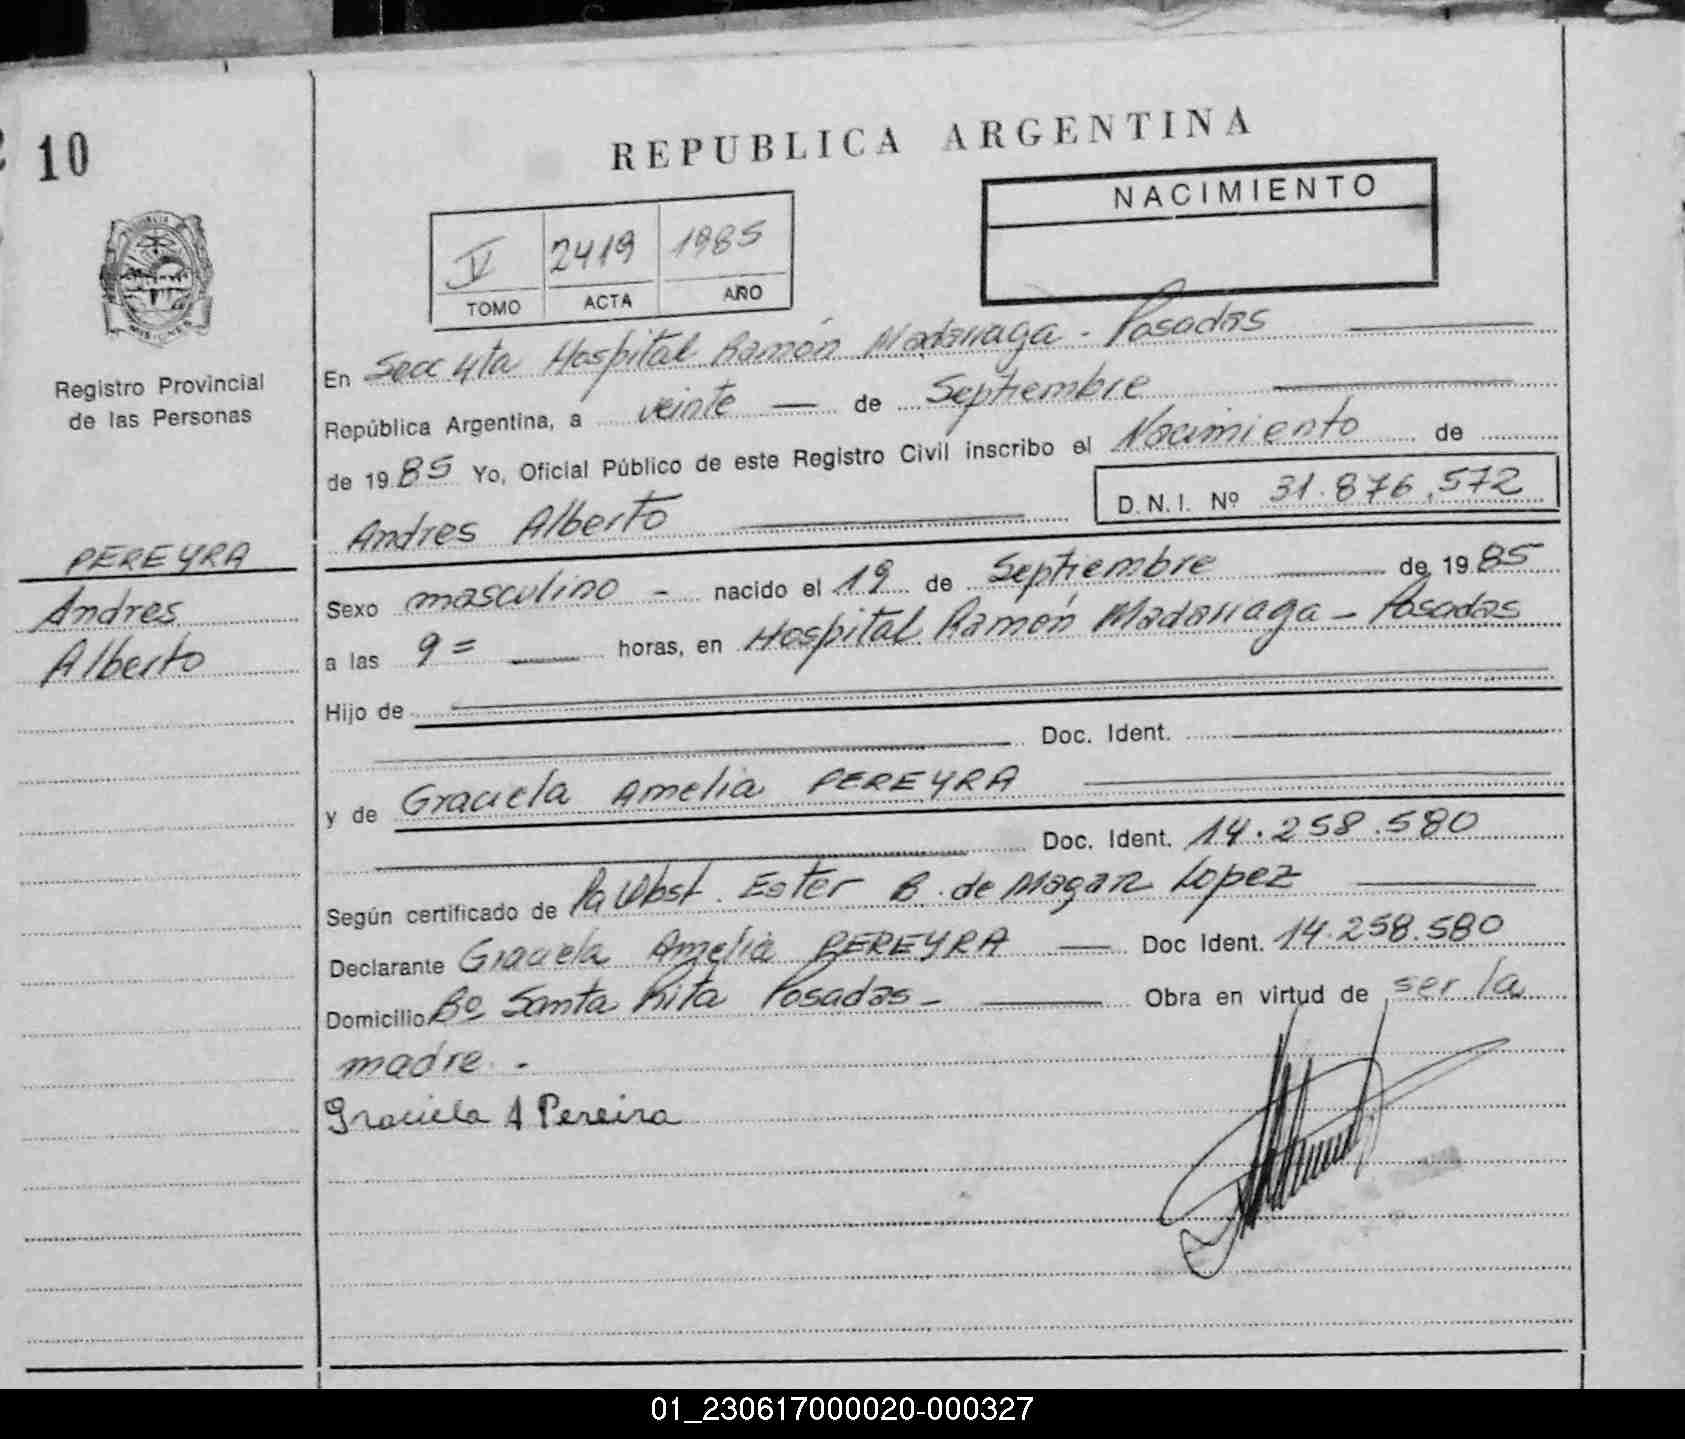 10
REPUBLICA ARGENTINA
NACIMIENTO
V 2419 1985
TOMO ACTA AÑO
Registro Provincial
de las Personas
PEREYRA
Andres
Alberto
En Secc 4ta Hospital Ramón Madariaga - Posadas
República Argentina, a veinte — de Septiembre
de 1985 Yo, Oficial Público de este Registro Civil inscribo el Nacimiento de
Andres Alberto
D.N.I. Nº 31.876.572
Sexo masculino - nacido el 19 de Septiembre de 1985
a las 9= horas, en Hospital Ramón Madariaga - Posadas
Hijo de
Doc. Ident.
y de Graciela Amelia PEREYRA
Doc. Ident. 14.258.580
Según certificado de Obst. Ester B. de Magan Lopez
Declarante Graciela Amelia PEREYRA — Doc Ident. 14.258.580
Domicilio Bº Santa Rita Posadas - Obra en virtud de ser la
madre.-
Graciela A Pereira
01_230617000020-000327